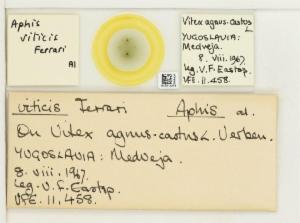 Aphis
viticis
Ferrari
Al
Vitex agnus-castus
L
YUGOSLAVIA:
Medveja.
8. viii. 1967.
leg. V. F. Eastop.
VFE. 11,458.
viticis Ferrari Aphis al.
On Vitex agnus-castus L. Verben.
YUGOSLAVIA: Medveja.
8. viii. 1967.
leg. V. F. Eastop.
VFE. 11,458.